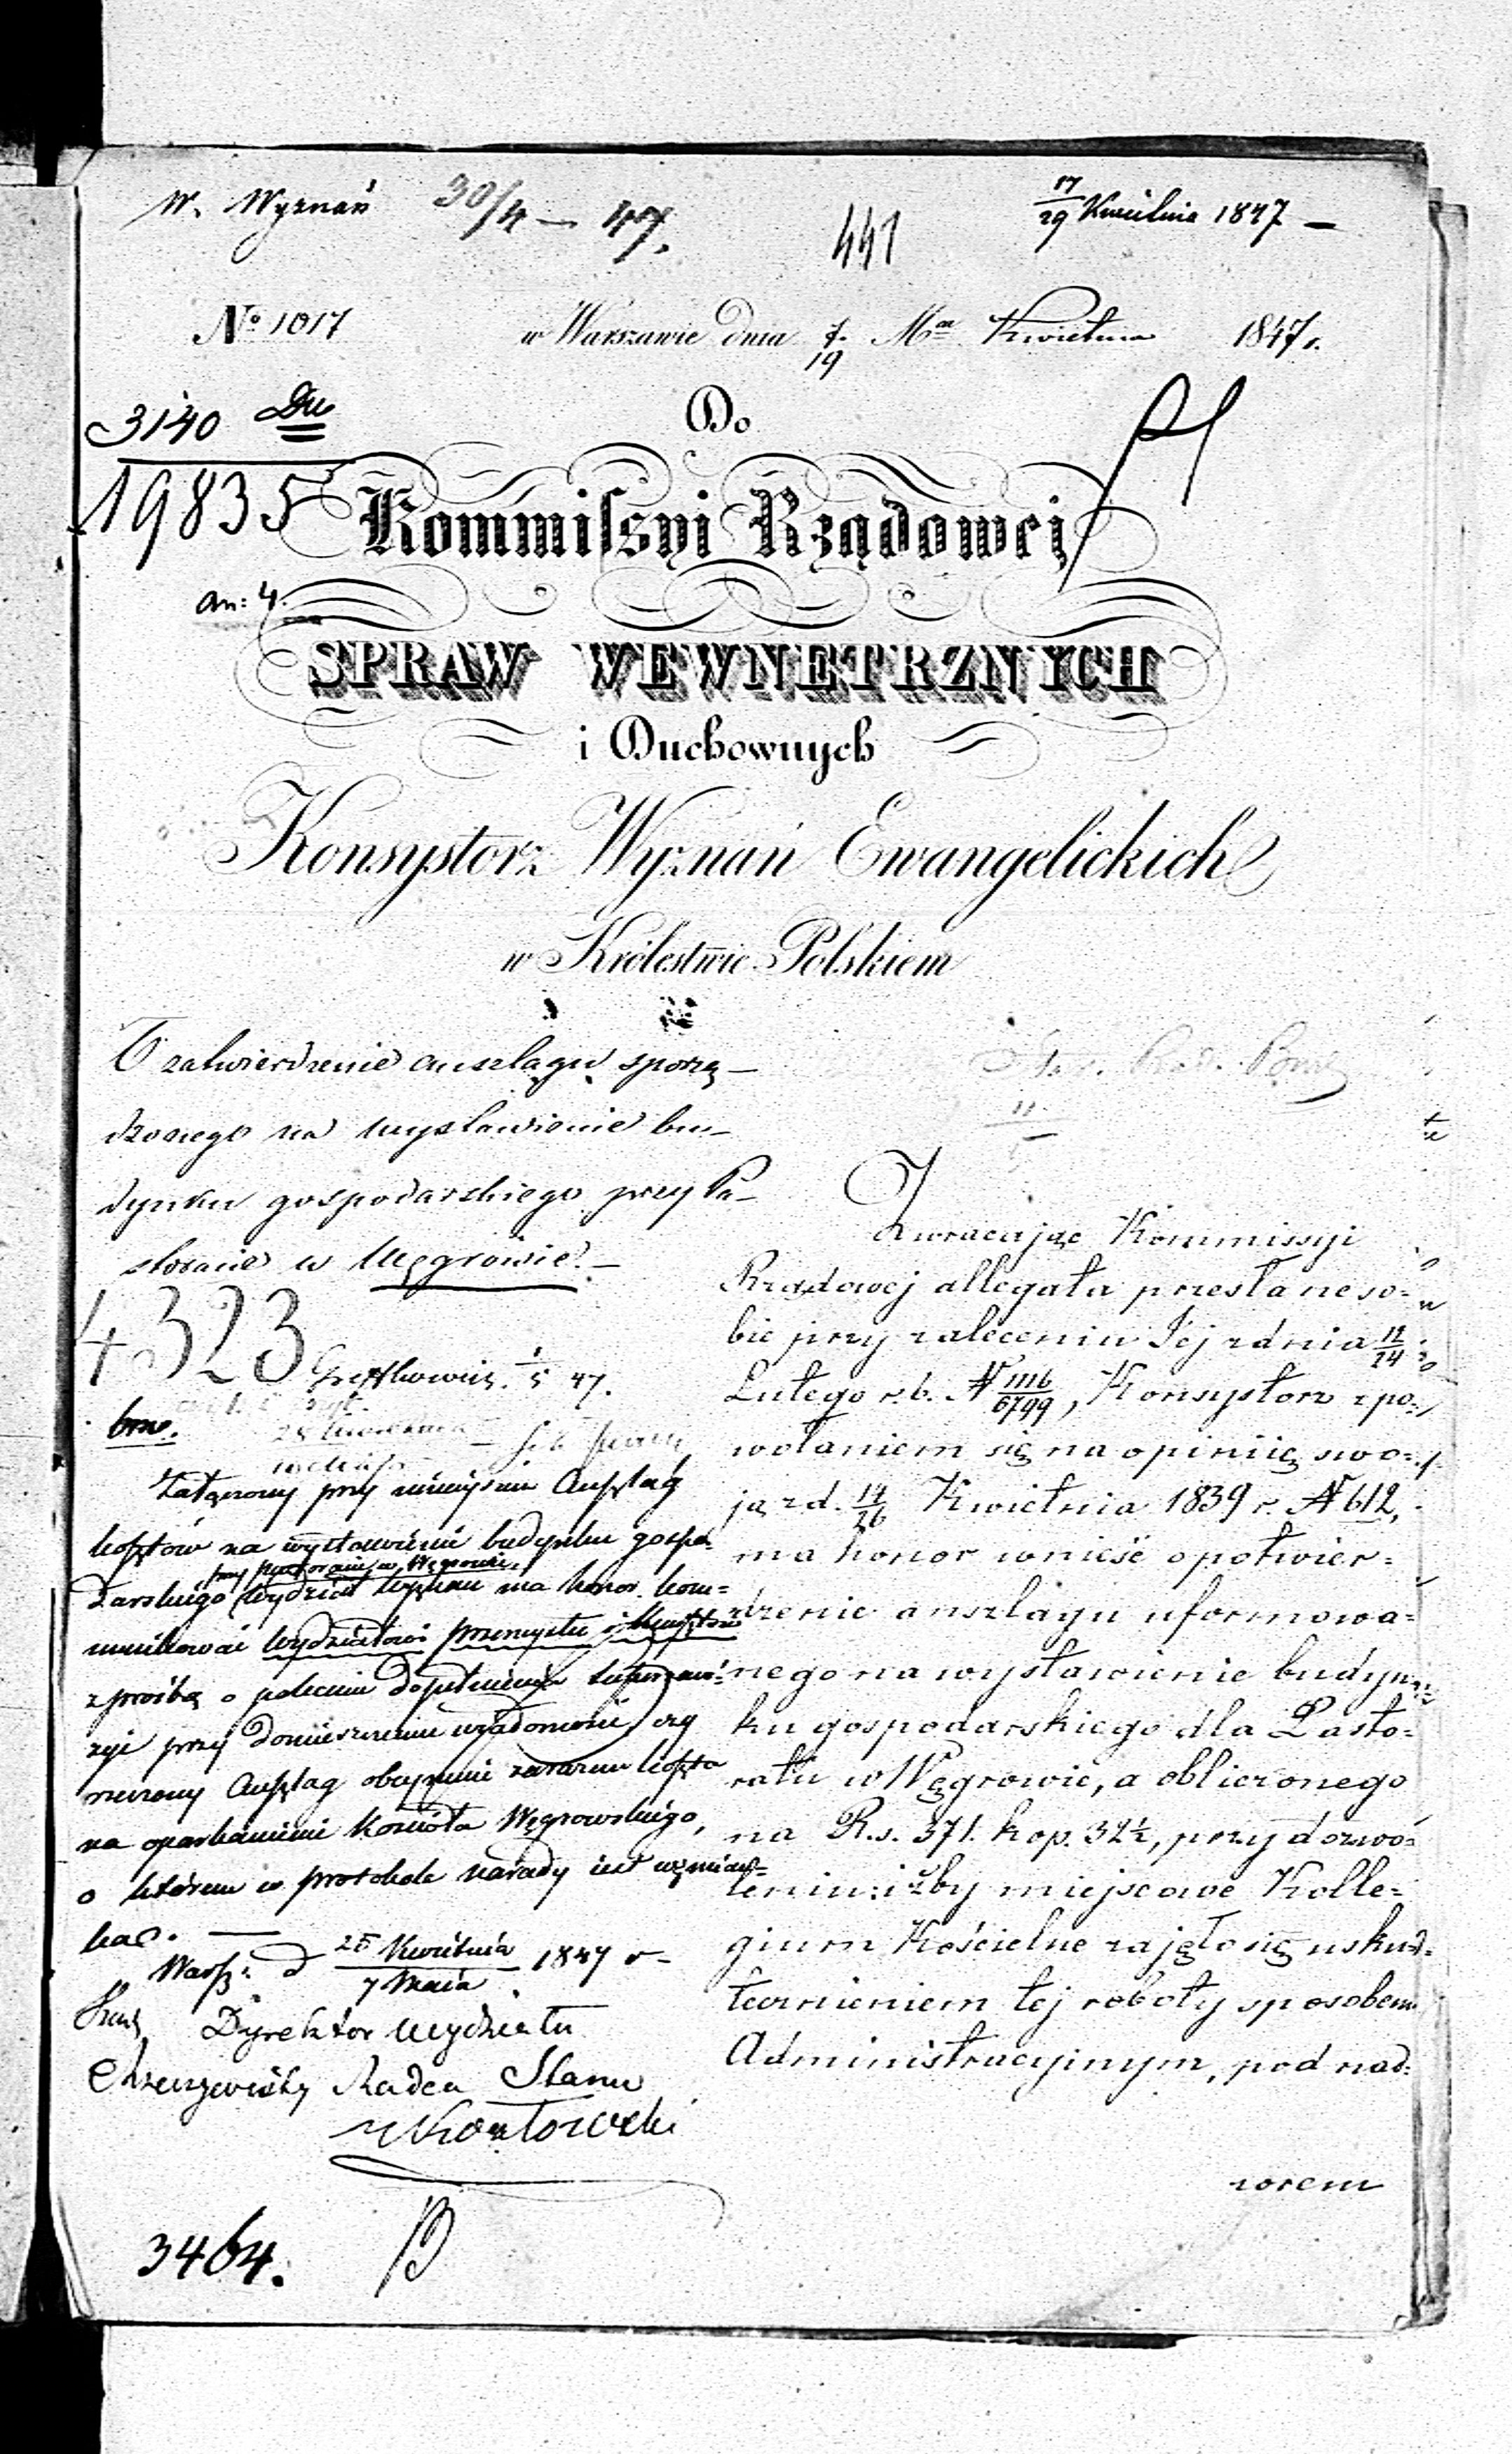 W. Wyznań 30/4 – 47.
441
17/29 Kwietnia 1847 –
No 1017 w Warszawie dnia 7/19 Mca Kwietnia 1847 r.
3140
19835
an: 4.
Do
Kommissyi Rządowej
SPRAW WEWNETRZNYCH
i Duchownych
Konsystorz Wyznań Ewangelickich
w Królestwie Polskiem
O zatwierdzenie anszlagu sporzą-
dzonego na wystawienie bu-
dynku gospodarskiego przy Pa-
storacie w Węgrowie. –
4323
47.
bra.
Załączony przy niniejszem Anszlag
kosztów na wystawienie budynku gospo-
przy pastoracie w Węgrowie,
darskiego Wydział Wyznań ma honor kom-
munikować Wydziałowi Przemysłu i Kunsztów
z prośbą o polecenie dopełnienia superrewi-
zyi przy doniesieniu wiadomości czy
rzeczony Anszlag obejmuje zarazem koszta
na oparkanienie Kościoła Węgrowskiego,
o którem w protokole narady jest wzmian-
ka. –
Warsz: d 25 Kwietnia / 7 Maia 1847 r –
Dyrektor Wydziału
Radca Stanu
3464.
Zwracając Kommissyi
Rządowej allegata przesłane so-
bie przy zaleceniu Jej z dnia 12/24
Lutego r. b. N 1116/6799, Konsystorz z po-
wołaniem się na opiniię swo-
ją z d. 14/26 Kwietnia 1839 r. N 612,
ma honor wnieść o potwier-
dzenie anszlagu uformowa-
nego na wystawienie budyn-
ku gospodarskiego dla Pasto-
ratu w Węgrowie, a obliczonego
na R.s. 371. kop. 32½, przy dozwo-
leniu: iżby miejscowe Kolle-
gium Kościelne zajęło się usku-
tecznieniem tej roboty sposobem
Administracyjnym, pod nad-
zorem